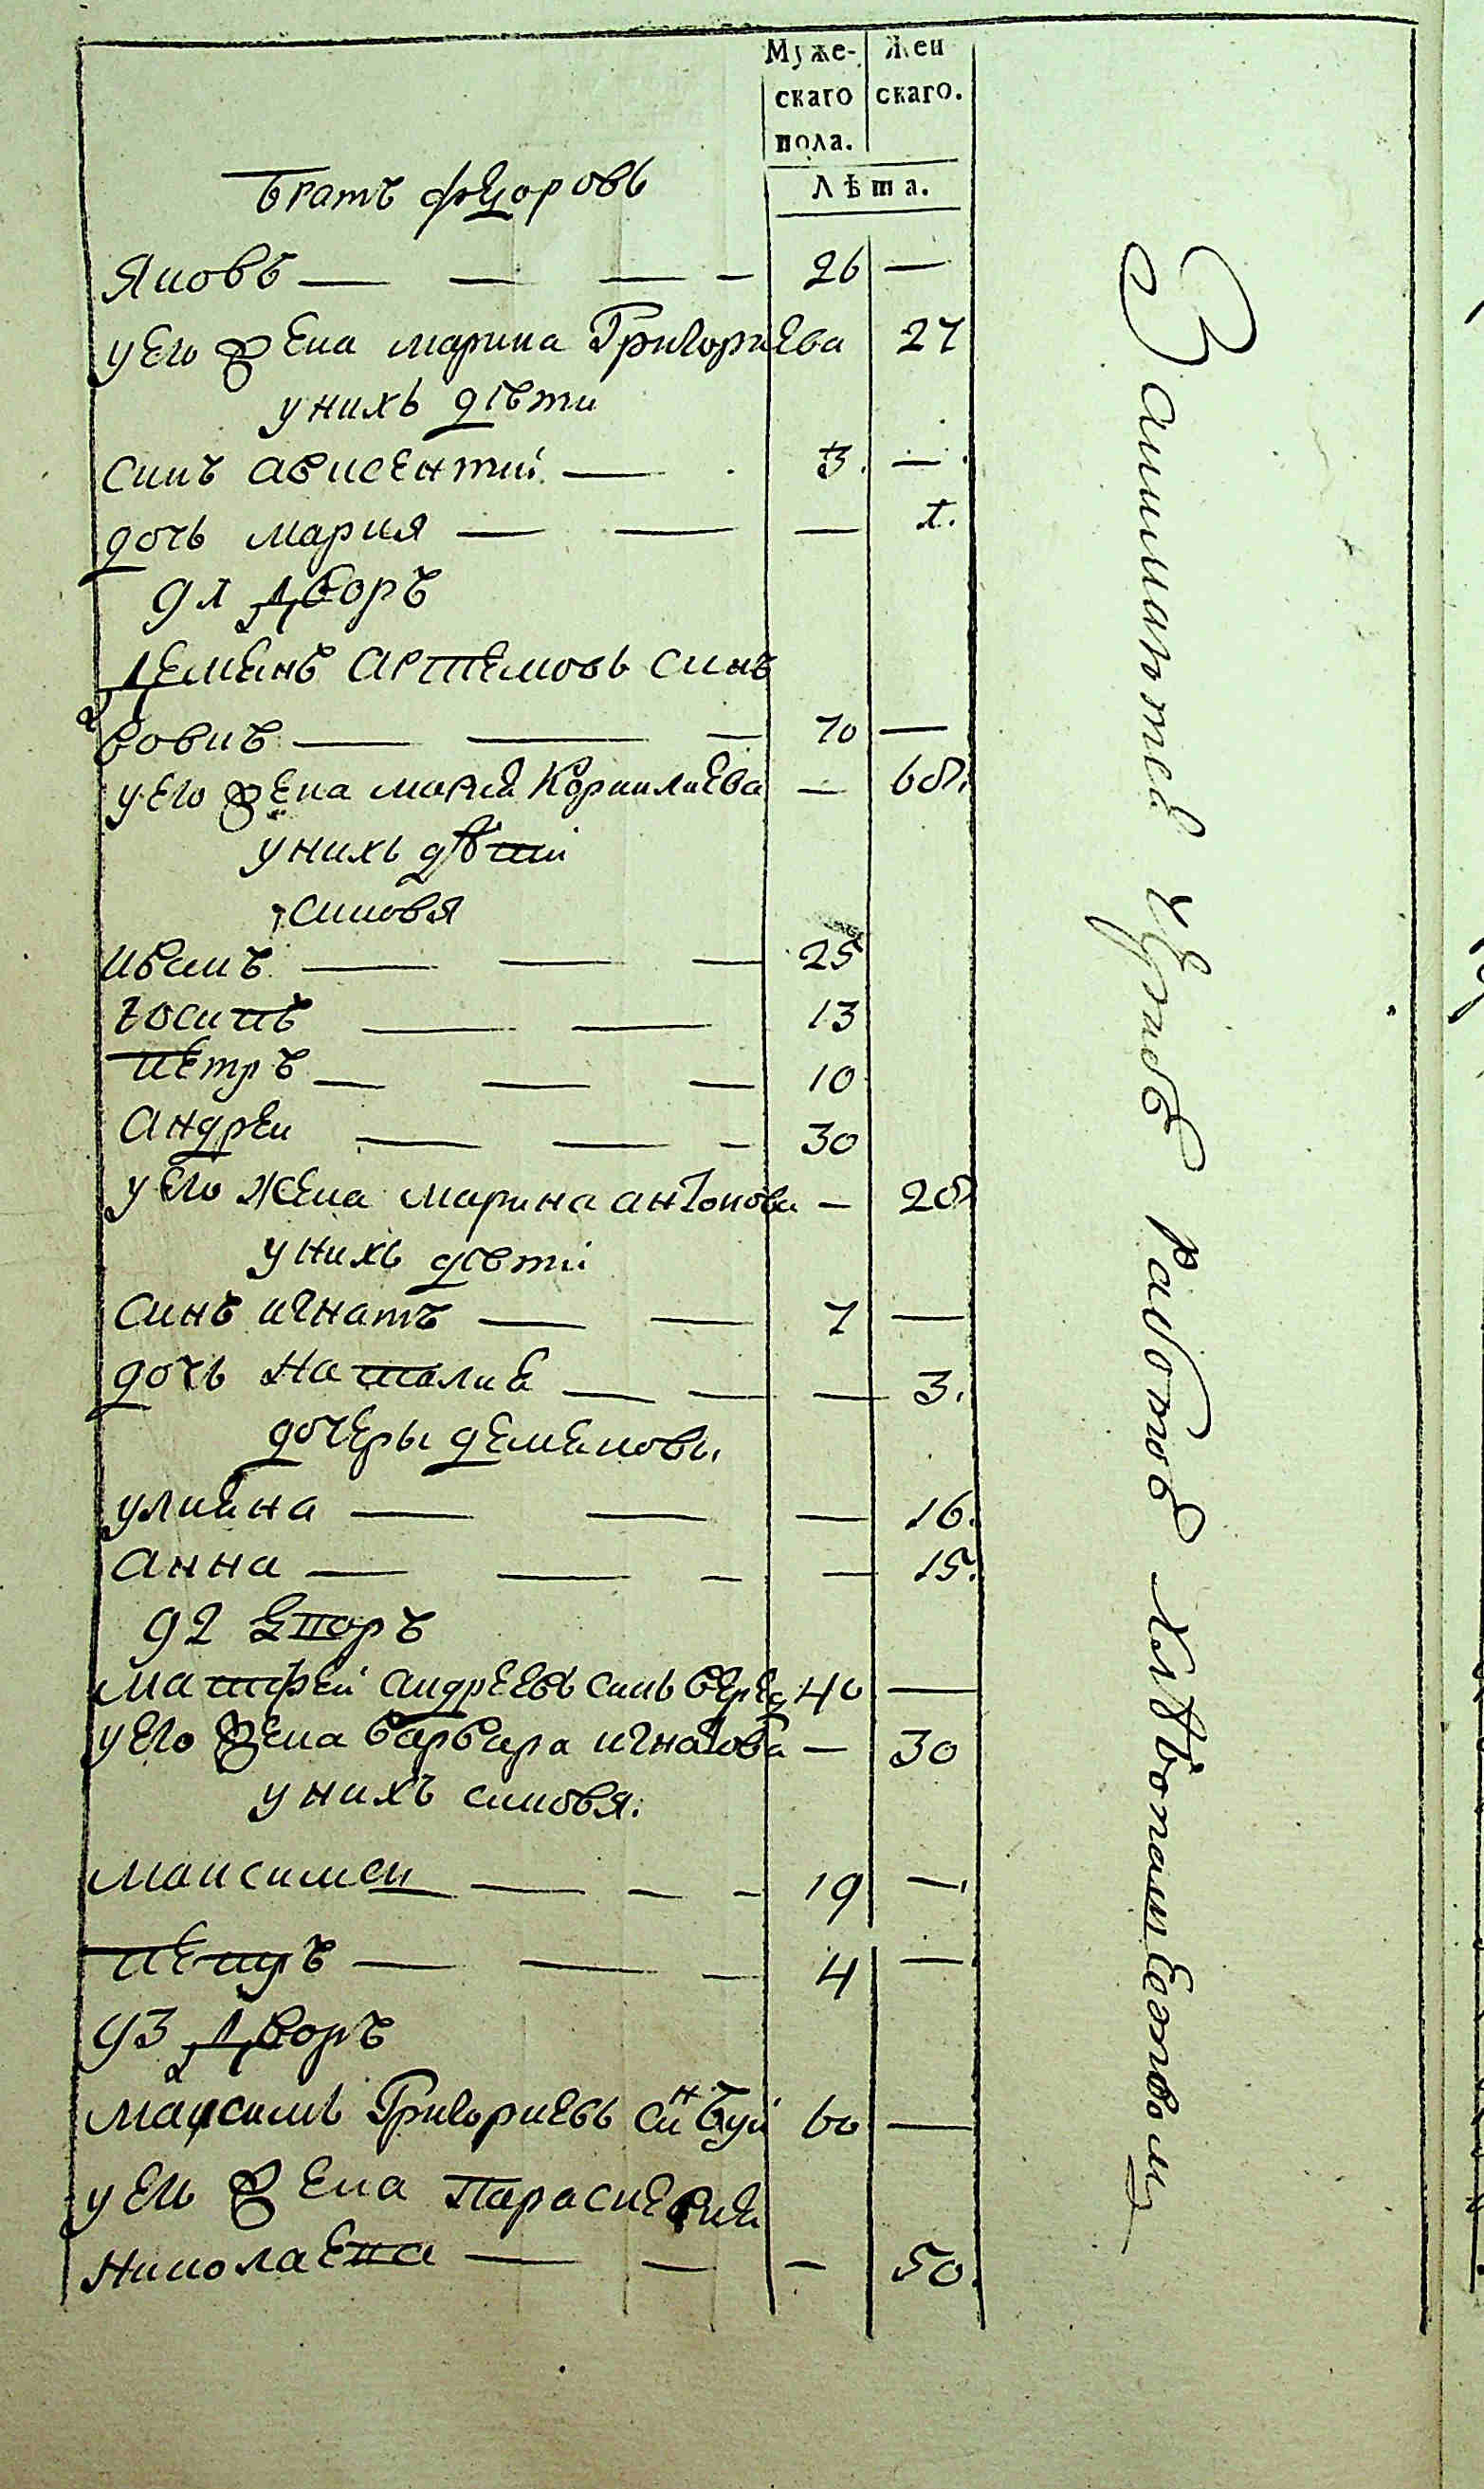 Муже- Жен
скаго скаго.
пола.
Лѣта.
братъ федоровь
Яковъ — — — — 26 —
у его жена марина Григориева 27
у нихь дѣти
синъ авксентий — 3. —
дочь мария — — — 1.
91 дворъ
Деменъ артемовь синъ
вовкъ — — — 70 —
у его жена мария Корнилиева — 68.
у нихь дѣти
синовя
иванъ — — — 25
иосипъ — — 13
петръ — — — 10
андреи — — — 30
у его жена марина антонова — 28
у нихь дѣти
синъ игнатъ — — 7 —
дочь наталия — — — 3.
дочеры деменовы
улияна — — — 16.
анна — — — — 15.
92 дворъ
матфей андреевь синь 40 —
у его жена варвара игнатова — 30
у нихъ синовя.
максимеи — — — 19 —
петръ — — — 4 —
93 дворъ
максимъ Григориевь синъ буй 60 —
у его жена Параскевия
николаева — — — 50.
Занимаются работою хлѣбопашествомъ